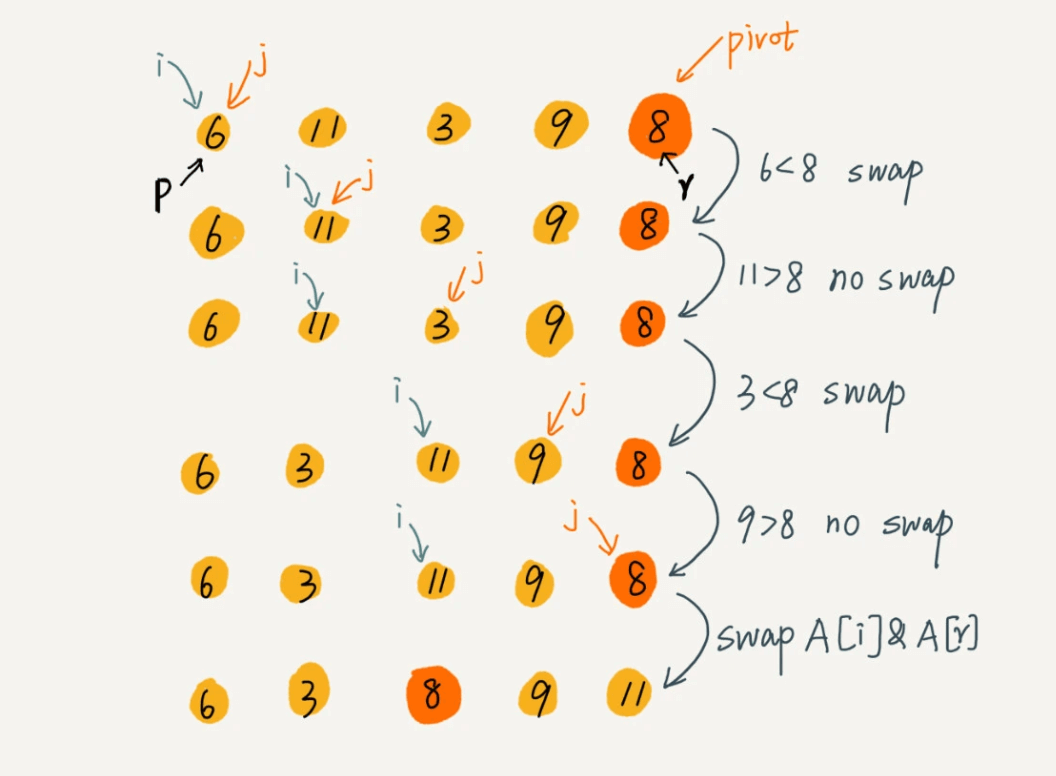 pivot
i j
6 11 3 9 8
p r
6<8 swap
i j
6 11 3 9 8
11>8 no swap
i j
6 11 3 9 8
3<8 swap
i j
6 3 11 9 8
9>8 no swap
i j
6 3 11 9 8
swap A[i]&A[r]
6 3 8 9 11